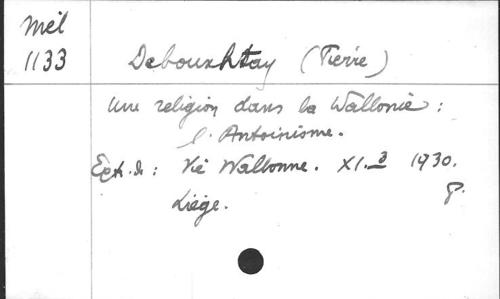 Mél
1133
Debouxhtay (Pierre)
Une religion dans la Wallonie :
l'Antoinisme.
Extr. de : Vie Wallonne. XI. 3 1930.
Liège. 8.